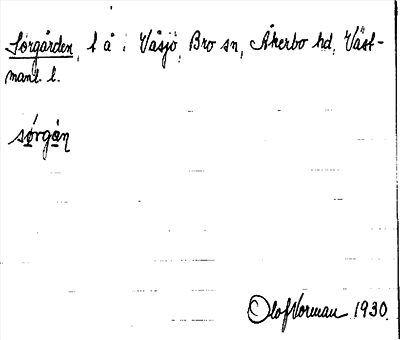 Sörgården, l å i Väsjö, Bro sn, Åkerbo hd, Väst-
manl. l.
sørgån
Olof Vorman 1930.